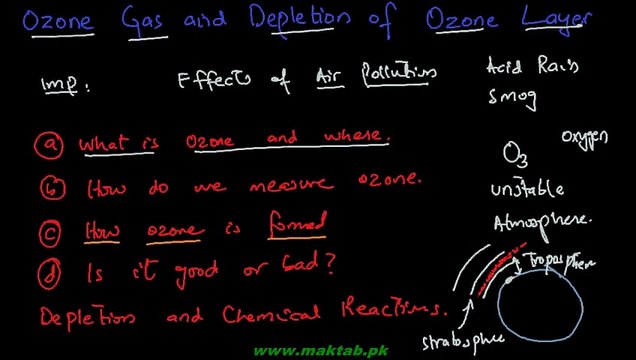 Ozone Gas and Depletion of Ozone Layer
Imp: Effects of Air Pollution
Acid Rain
Smog
(a) What is Ozone and where.
(b) How do we measure ozone.
(c) How ozone is formed
(d) Is it good or bad?
Depletion and Chemical Reactions.
Oxygen
O3
Unstable
Atmosphere.
Troposphere
Stratosphere
www.maktab.pk